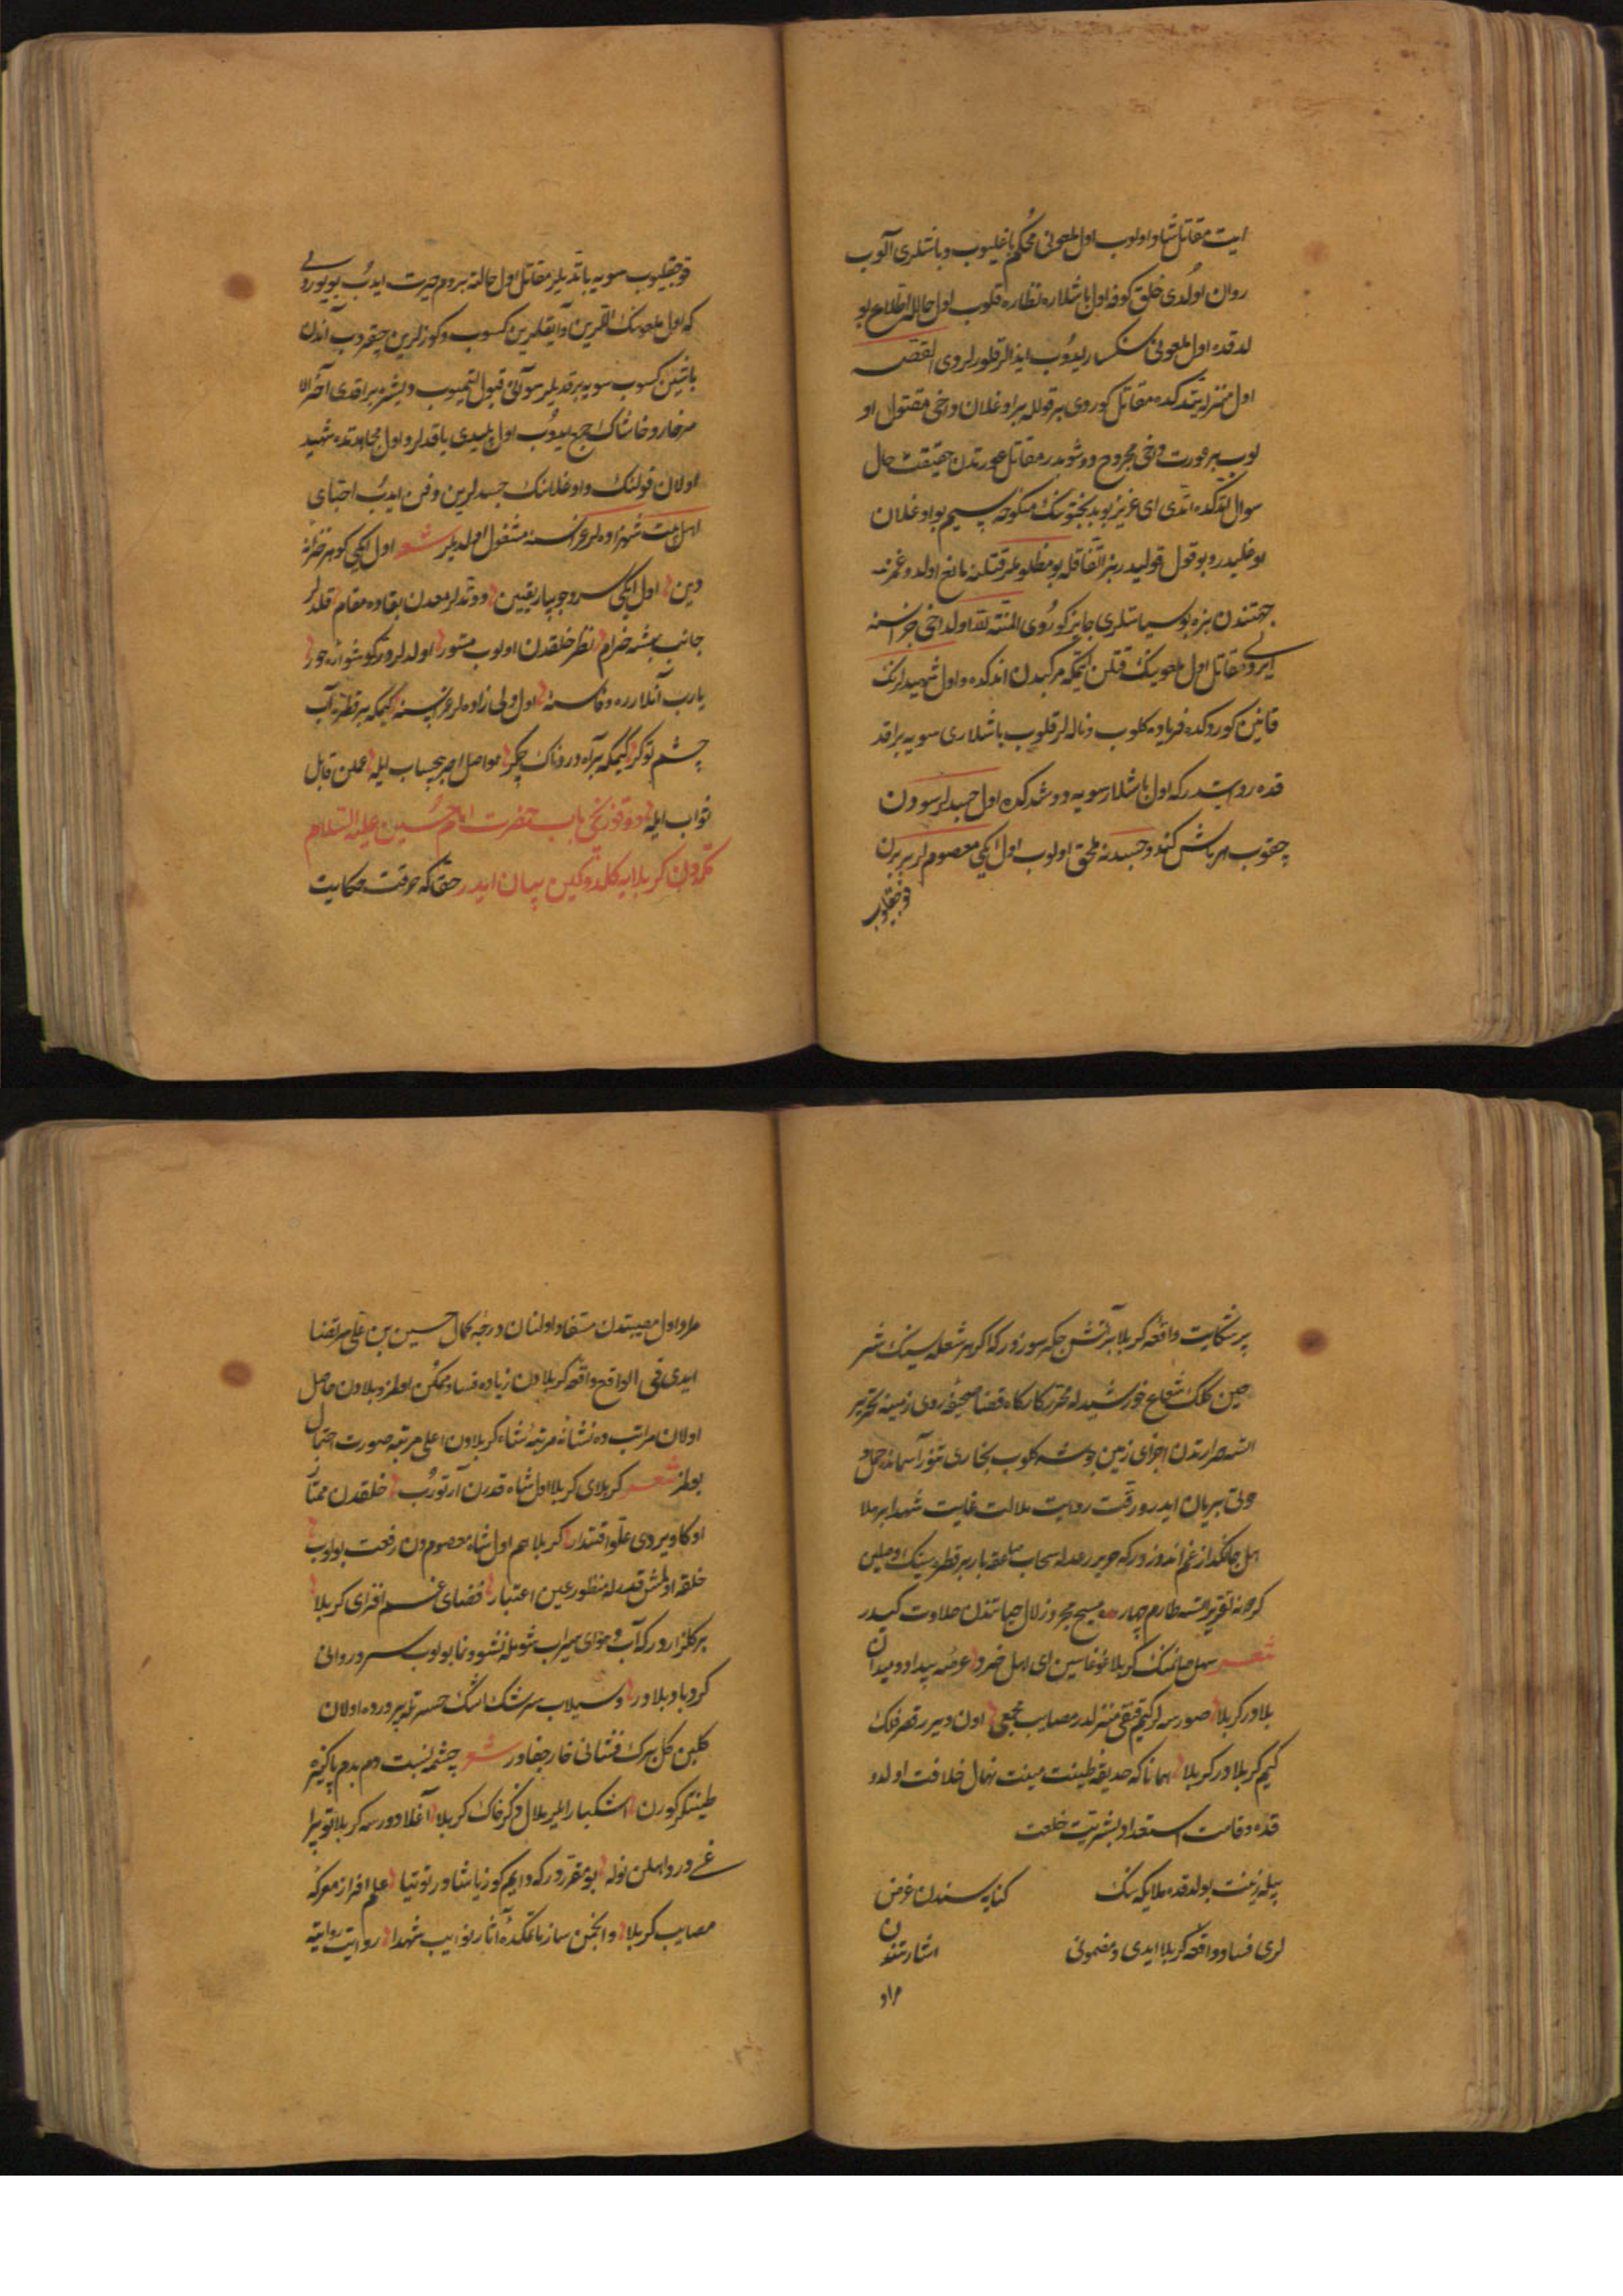 ایت مقاتل شاد اولوب اول ملعونی محکم باغلیوب و باشلری آلوب
روان اولدی خلق کوفه اول باشلاره نظاره قلوب اول حالله اطلاع بو
لدقده اول ملعونی سنکسار ایدوب ایذالر قلورلردی القصه
اول منزله یتدکده مقاتل کوردی بر قولله بر اوغلان داخی مقتول او
لوب بر عورت داخی مجروح دوشوبدر مقاتل عورتدن حقیقت حال
سوال اتدکده اتدی ای عزیز بو بدبختونک منکوحه سیم بو اوغلان
اوغلیدر و بو قول قولیدر بز اتفاقله بو مظلوملر قتلنه مانع اولدوغمز
جهتندن بزه بو سیاستلری جایز کوردی المنة لله اولداخی جزاسنه
ایردی مقاتل اول ملعونک قتلن ایتمکه مرکبدن اندکده و اول شهیدلرنک
قانین کوردکده فریاده کلوب و ناله لر قلوب باشلاری سویه براقد
قده روایتدرکه اول باشلار سویه دوشدکده اول جسدلر سودن
چقوب هر باش کندو جسدنه ملحق اولوب اول ایکی معصوم لر بربرن
قوجقلیوب
قوجقلیوب سویه باتدیلر مقاتل اول حالته بر دم حیرت ایدب بویوردی
که اول ملعونک اللرین و آیقلرین کسوب و کوزلرین چقروب آندن
باشین کسوب سویه برقدیلر سو آنی قبول اتمیوب و طشره براقدی آخر الا
مر خار و خاشاک جمع ایدوب اول پلیدی یاقدلر و اول مجاهدتده شهید
اولان قولنک و اوغلاننک جسدلرین دفن ایدب احبای
اهل بیت شهزاده لر عزاسنه مشغول اولدیلر شعر اول ایکی کوهر خزانه
دین اول ایکی سرو جویبار یقین دوتدلر معدن بقاده مقام قلدلر
جانب بهشته خرام نظر خلقدن اولوب مستور اولدلر زیور کوشواره حور
یارب آنلارده وفاسنه اول ولی زاده لر عزاسنه کیمکه بر قطره آب
چشم توکر کیمکه بر آه دردناک چکر مواصل اجر بیحساب ایله عملن قابل
ثواب ایله دوقوزنجی باب حضرت امام حسین علیه السلام
مکه دن کربلایه کلدوکین بیان ایدر حقاکه حرقت حکایت
پر شکایت واقعه کربلا بر آتش جکر سوزدر که اکر هر شعله سینک شر
حین کلک شعاع خورشیدله محرر کارکاه قضا صحیفه روی زمینه تحریر
اتسه حرارتدن اجزای زمین جوشه کلوب بخاری تنور آسمانده حمل و
حوتی بریان ایدر و رقت روایت ملالت غایت شهدا بر ملا
هل جانکداز غم اندوزدرکه جریر رعدله سحاب صاعقه بار بر قطره سینک وصفین
کره تقریر اتسه طارم چهارمده مسیح مجرد زلال حیاتندن حلاوت کیدر
شعر سهل صانمنک کربلا غوغاسین ای اهل خرد عرصه بیداد و میدان
بلادر کربلا صورسه لر کیم قنقی منزلدر مصایب مجمعی اون دیرر قصر فلک
کیم کربلادر کربلا همانا که حدیقه طینت میمنت نهال خلافت اولدو
قده و قامت استعداد بشریت خلعت
پیله زینت بولدقده ملایکه نک
کنایه سندن غرض
لری فساد واقعه کربلا ایدی و مضمونی
اشارتندن
مراد
مراد اول مصیبتدن مستفاد اولنان درجه کمال حسین بن علی مرتضا
ایدی فی الواقع واقعه کربلادن زیاده فساد ممکن اولمز و بلادن حاصل
اولان مراتب ده نشانه مرتبه شاه کربلادن اعلی مرتبه صورت احتمال
بولمز شعر کربلای کربلا اول شاه قدرن آرتورب خلقدن ممتاز
اوکا ویردی علو اقتدار کربلا هم اول شاه معصومدن رفعت بولوب
خلقه اولمش قدرله منظور عین اعتبار فضای غم افزای کربلا
بر کلزاردر که آب و هوای میراب شومله نشو و نما بولوب سرو روانی
کردباد بلادر و سیلاب سرشک اشک حسرتله پرورده اولان
کلبن کل برک فشانی خار جفادر شعر چشمه نسبت دم بدم پاکیزه
طینتلر کورن اشکبار ایلر بلال ذکر خاک کربلا آغلادورسه کربلا توپرا
غی درد اهلن نوله بو مقرردر که دایم کوز یاشادر توتیا علم افراز معرکه
مصایب کربلا و انجمن ساز ماتمکده آثار نوایب شهدا روایت روایته